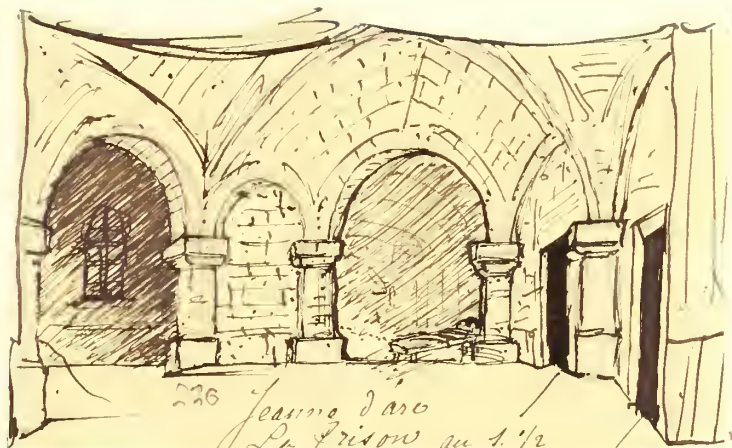 226 Jeanne d'arc
La Prison au 1.1/2